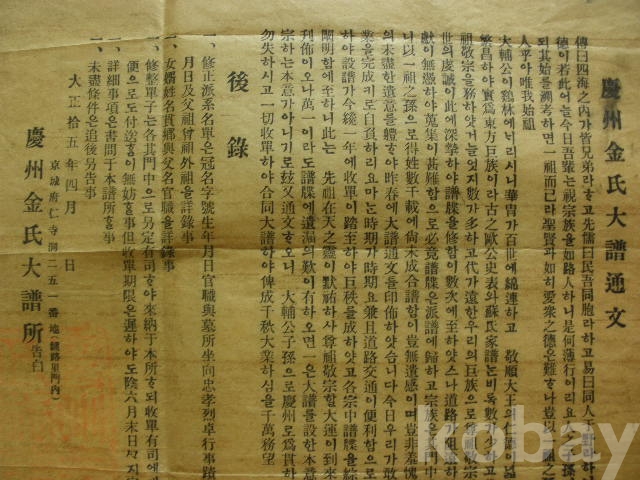 慶州金氏大譜通文
傳曰四海之内가皆兄弟라하고先儒曰民吾同胞라하고易曰同人于野라하니
德이若此어늘今日吾輩는祝宗族을如路人하니是何薄行이리요人之子孫
되其始를溯考하면一祖而已라聖賢과如히愛衆之德은難하나豈以一祖之
人乎아唯我始祖
大輔公이鷄林에나리시니華冑가百世에綿連하고 敬順大王의仁德이
繁昌하야實爲東方巨族이라古之歐公史表와蘇氏家譜는비록數人
祖敬宗을務하얏거늘엇지數가多하고代가遠한우리의巨族으로尊祖敬宗
世의虔誠이此에深摯하야譜牒을修함이數次에至하얏스나道路가阻遠하
獻이無憑하야蒐集이甚難함으로必竟譜牒은派譜에歸하고宗族은其門中
니以一祖之孫으로得姓數千載에尙未成合譜함이豈無遺感이며豈非羞愧
의未盡한遺意를體하야昨春에大譜通文을印佈하얏습니다今日우리가敢
業을完成키로自負하리요마는時期가時期요兼且道路交通이便利함으로
하야設譜가今綫一年에收單이踏至하야巨秩을成하얏고各宗中譜牒을綜
闡明함에至하니此는 先祖在天之靈이默祐하사尊祖敬宗할大運이到來
列佈이오나萬一이라도譜牒에遺漏의歎이有하오면一은大譜를設한本意
宗하는本意가아니기로玆又通文하오니 大輔公子孫으로慶州로爲貫하
勿失하시고一切收單하야合同大譜하야俾成千秋大業하심을千萬務望
後錄
一、修正派系名單은冠名字號生年月日官職與墓所坐向忠孝烈卓行事蹟
月日及父祖曾祖外祖을詳錄事
一、女婿姓名貫鄕與父名官職을詳錄事
一、修整單子는各其門中으로另定有司하야來納于本所하되收單有司에
便으로도付送함이無妨할事但收單期限은遲하야도陰六月末日
一、詳細事項은書問于本譜所할事
一、未盡條件은追後另告事
大正拾五年四月 日
京城府仁寺洞二五一番地(鍾路里門内)
慶州金氏大譜所 告白
kobay